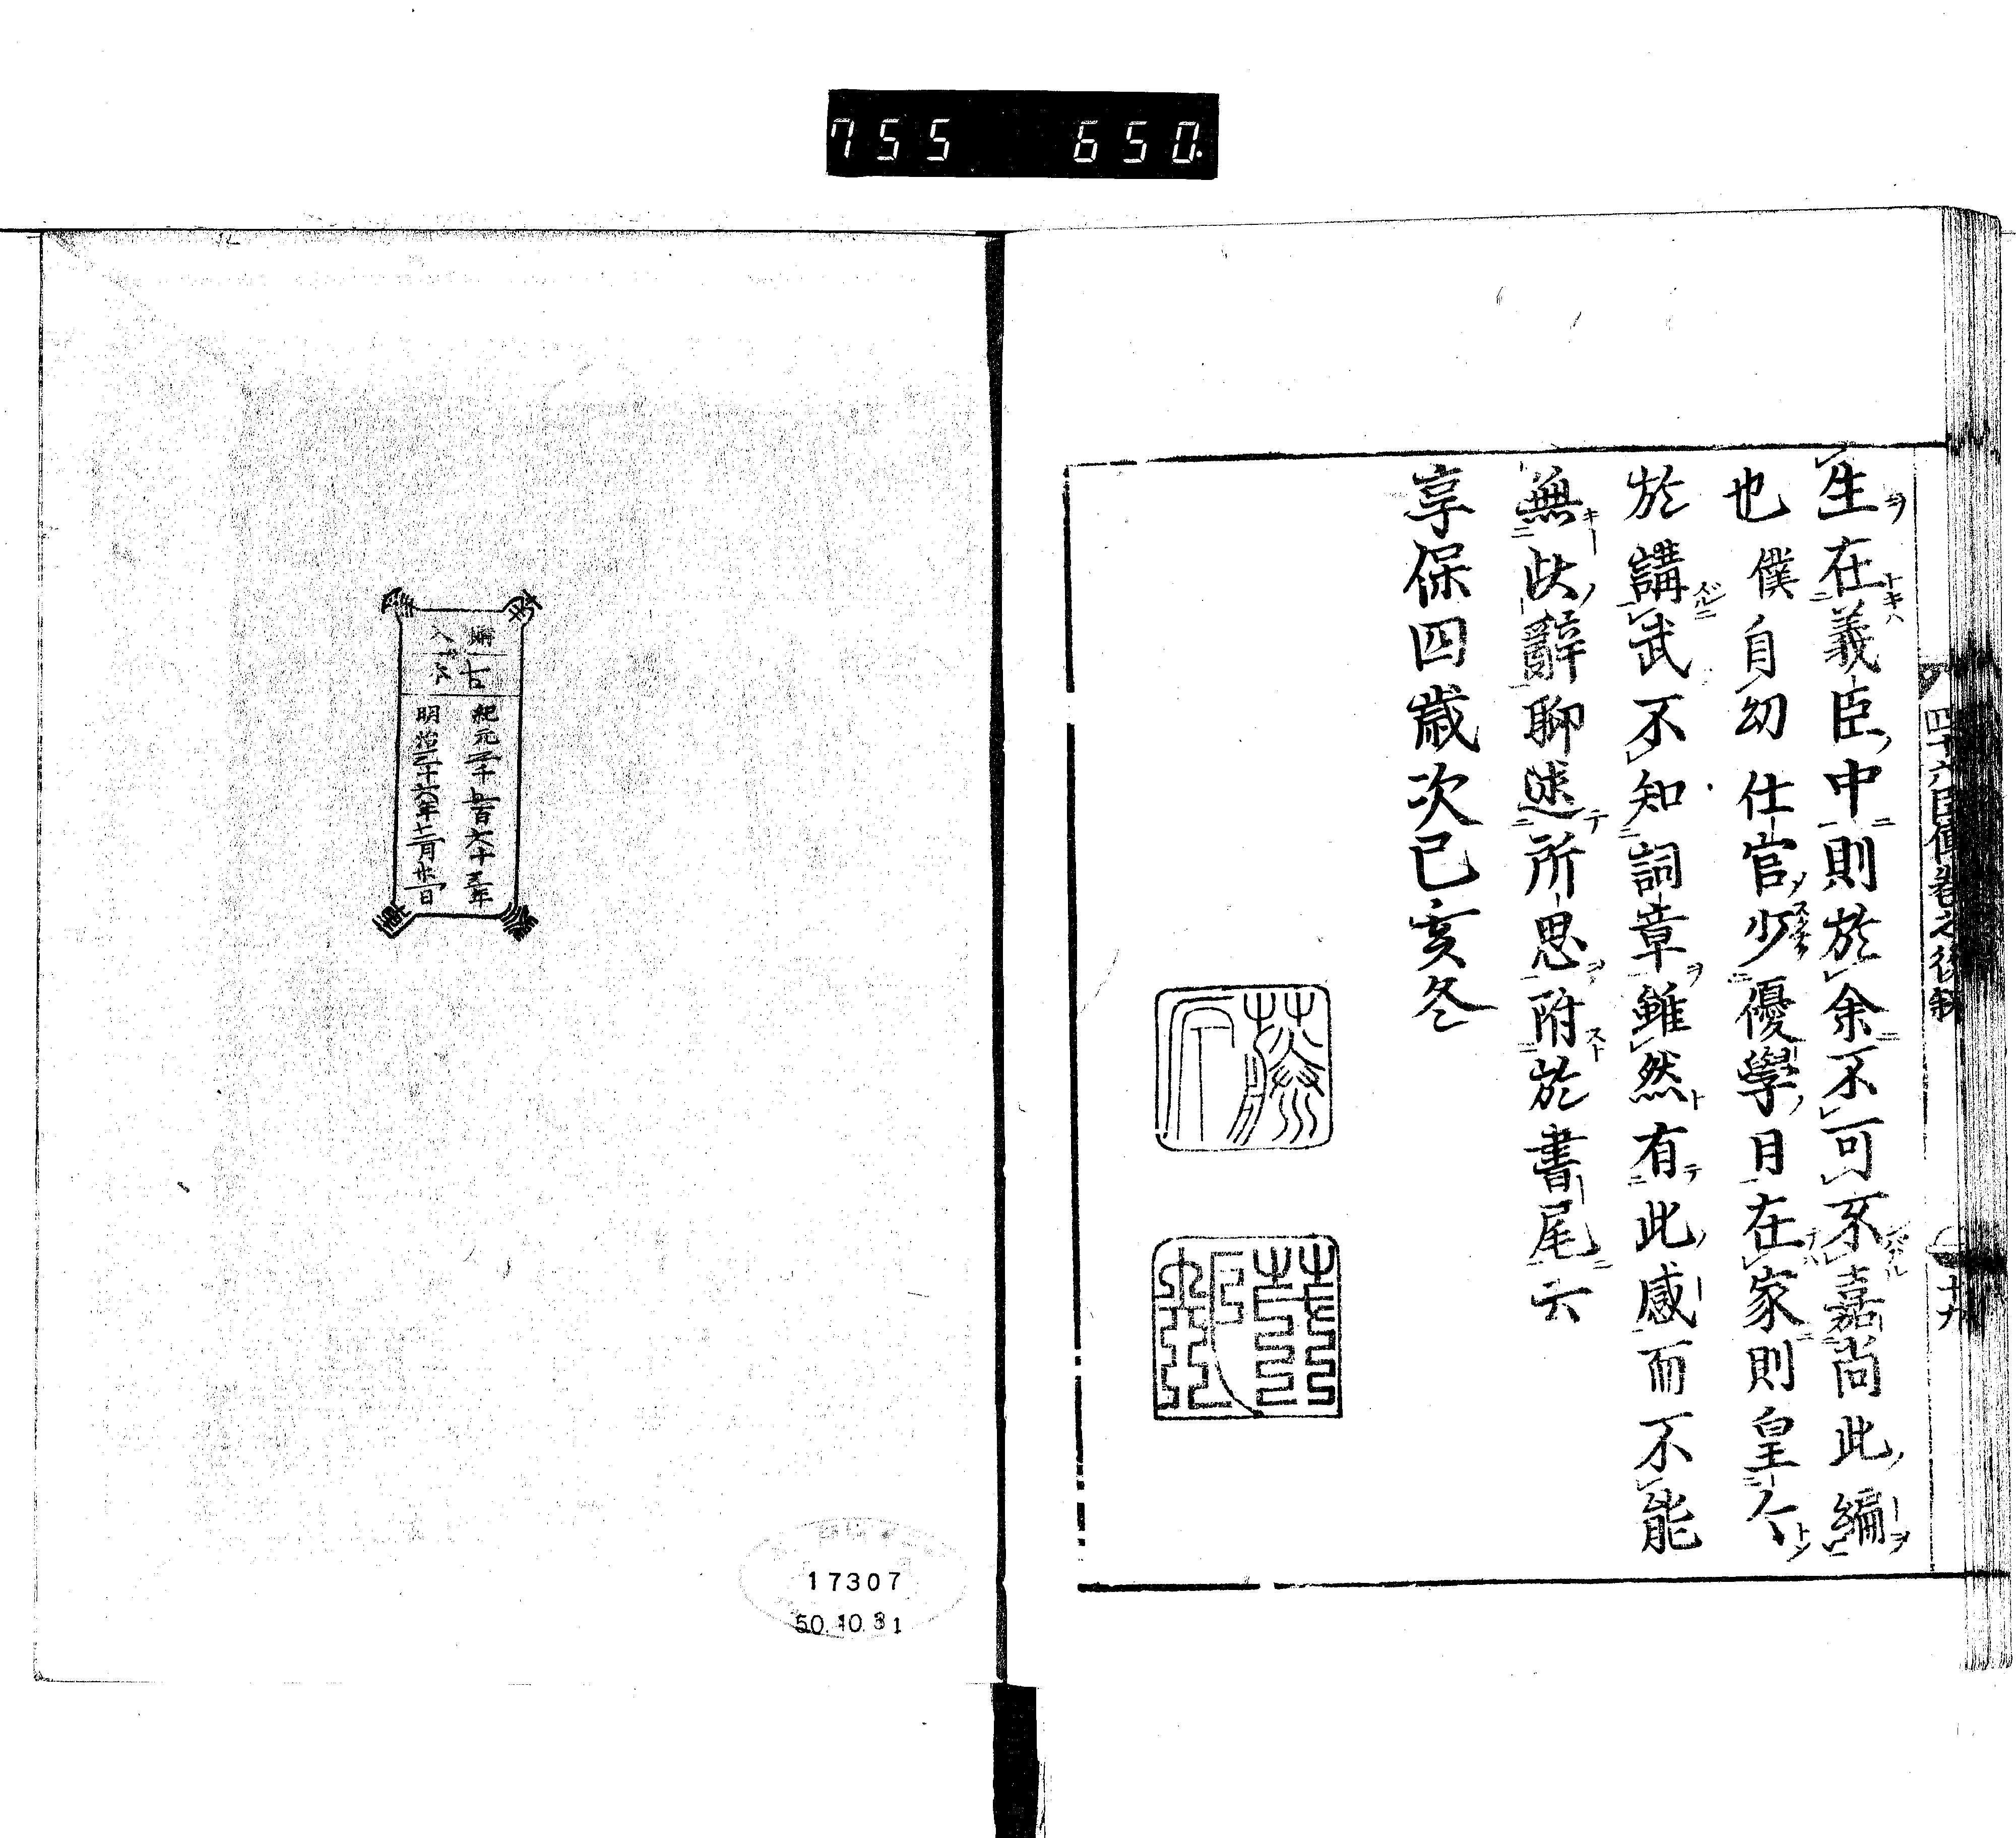 755 650.
四十六臣傳卷之後叙
十九
生在義臣中則於余不可不嘉尚此編
也僕自幼仕官少優學日在家則皇々
於講武不知詞章雖然有此感而不能
無此辭聊述所思附於書尾云
享保四歳次己亥冬
購入
古本
紀元二千五百六十三年
明治三十六年十二月廿一日
17307
50.10.31